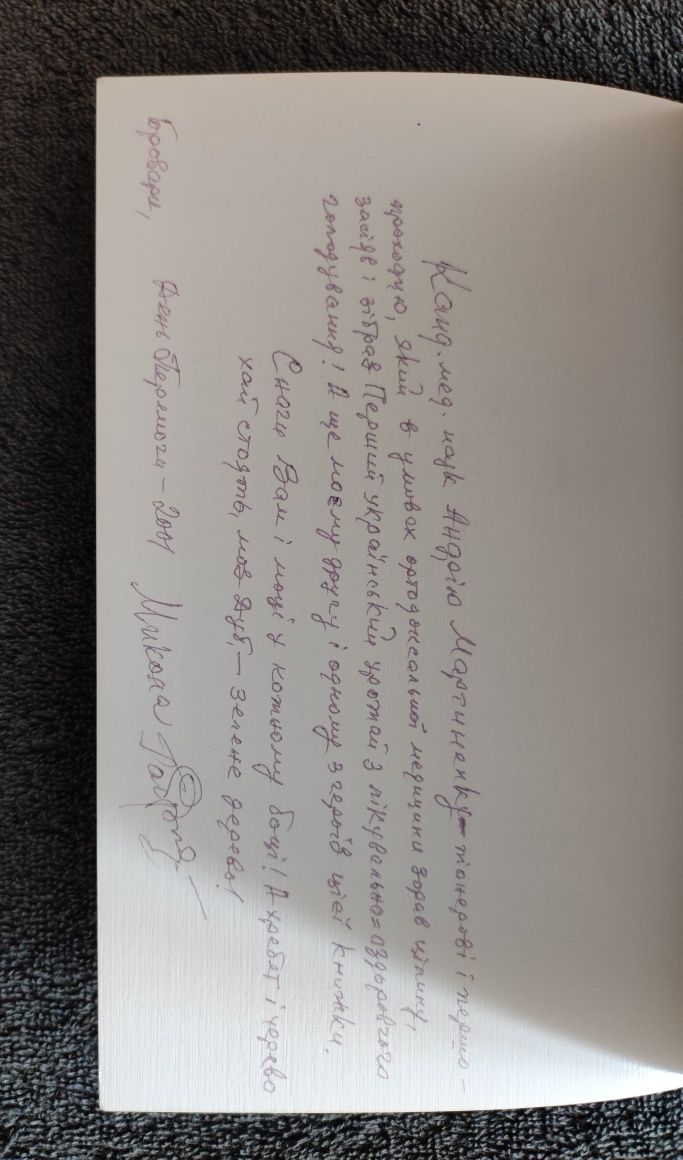 Канд. мед. наук Андрію Мартиненку – піонерові і першо-
проходцю, який в умовах ортодоксальної медицини зорав цілину,
засіяв і зібрав Перший український урожай з лікувально-оздоровчого
голодування! А ще моєму другу і одному з героїв цієї книжки.
Снаги Вам і моці у кожному боці! А хребет і черево
хай стоять, мов дуб, – зелене дерево!
Бровари, День Перемоги – 2001 Микола